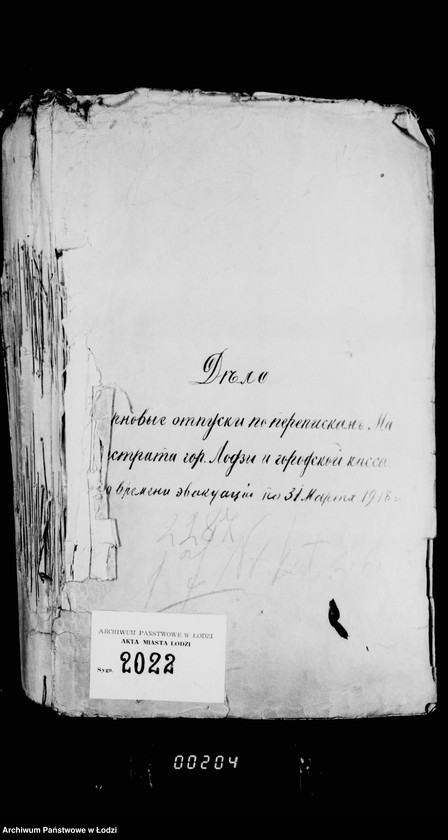 Дѣло
рновые отпуски по перепискамъ Ма
страта гор. Лодзи и городской кассы
о времени эвакуаціи по 31 Марта 1918 г.
ARCHIWUM PAŃSTWOWE W ŁODZI
AKTA MIASTA ŁODZI
Sygn. 2022
00204
Archiwum Państwowe w Łodzi